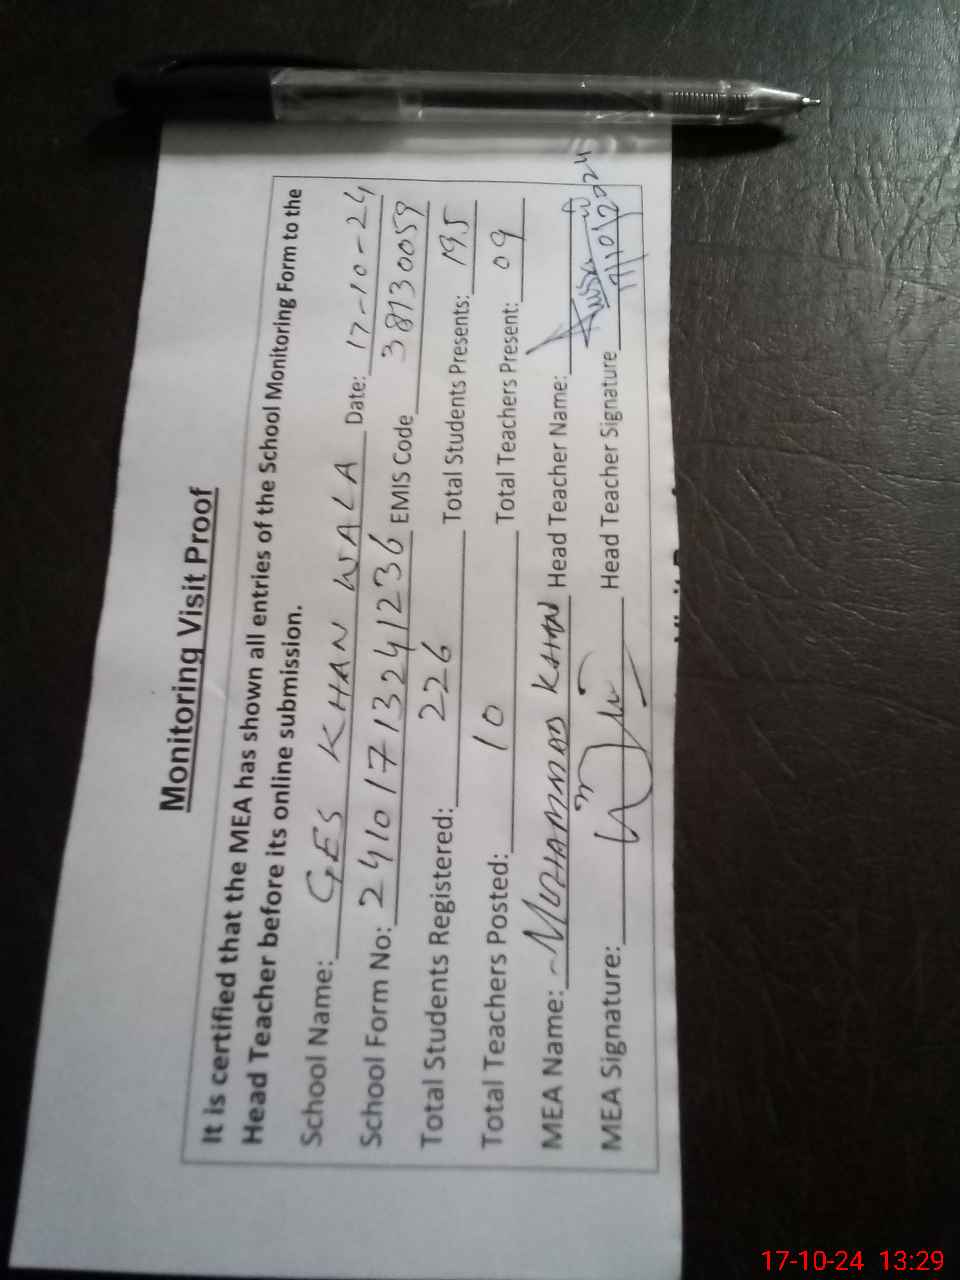 Monitoring Visit Proof
It is certified that the MEA has shown all entries of the School Monitoring Form to the
Head Teacher before its online submission.
School Name: GES KHAN WALA Date: 17-10-24
School Form No: 24101713241236 EMIS Code 38130059
Total Students Registered: 226 Total Students Presents: 195
Total Teachers Posted: 10 Total Teachers Present: 09
MEA Name: MUHAMMAD KHAN Head Teacher Name:
MEA Signature: Head Teacher Signature 17/10/2024
17-10-24 13:29